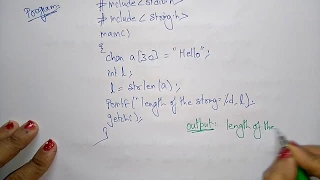 Program:-
#include<stdio.h>
#include<string.h>
main()
{
char a[30] = "Hello";
int l;
l = strlen(a);
printf("length of the string=%d, l);
getch();
}
output:- length of the